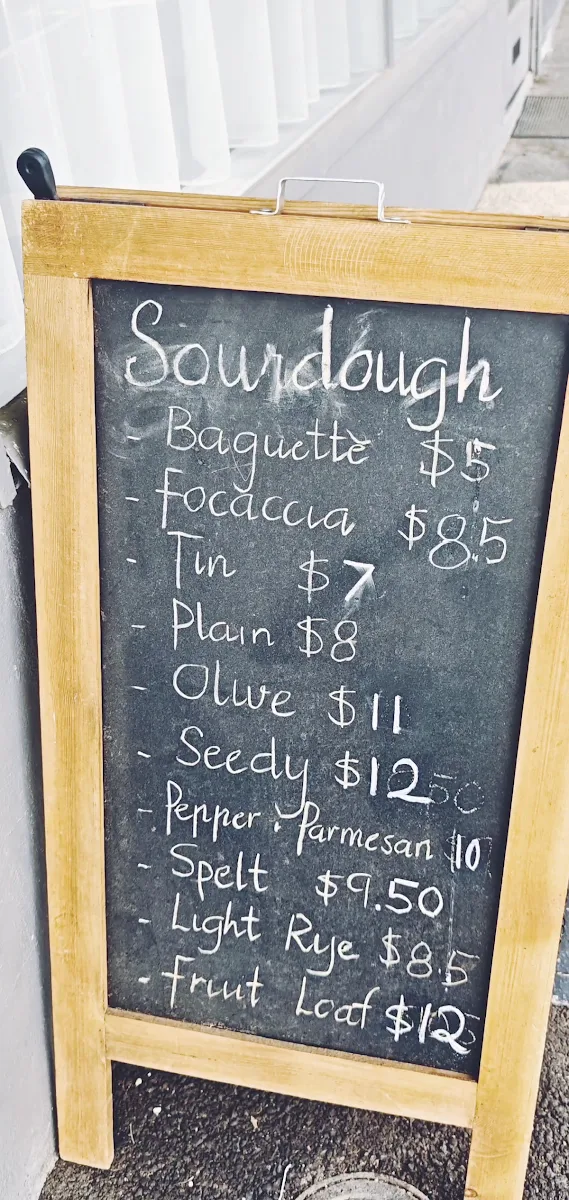 Sourdough
- Baguette $5
- Focaccia $8.5
- Tin $7
- Plain $8
- Olive $11
- Seedy $12
- Pepper & Parmesan $10
- Spelt $9.50
- Light Rye $8.5
- Fruit Loaf $12